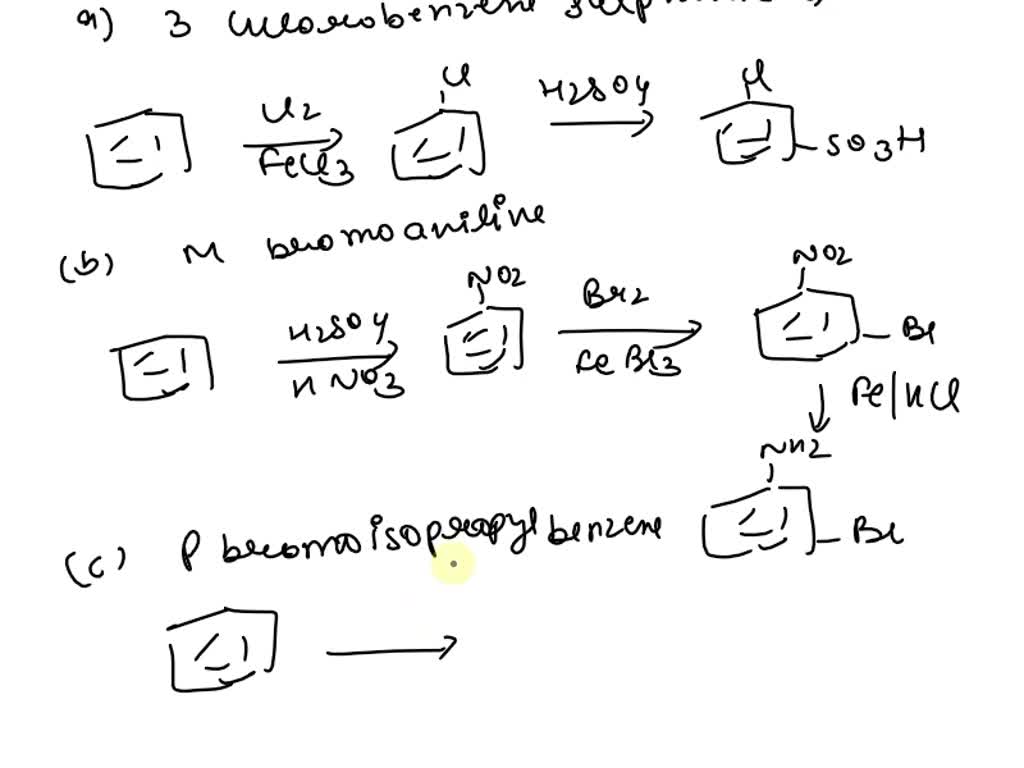 a) 3 chlorobenzene
Cl2
FeCl3
Cl
H2SO4
Cl
SO3H
(b) M bromoaniline
H2SO4
HNO3
NO2
Br2
FeBr3
NO2
Br
Fe/HCl
NH2
Br
(c) P bromoisopropylbenzene